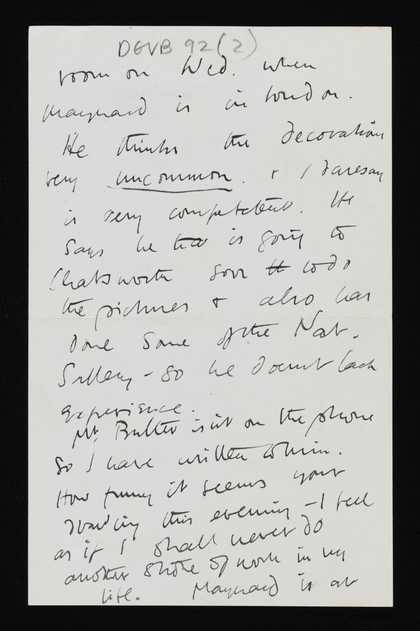 DGVB 92 (2)
room on Wed. when
Maynard is in London.
He thinks the decorations
very uncommon. & I daresay
is very competent. He
says he is going to
Chatsworth soon to do
the pictures & also has
done some of the Nat.
Gallery - so he doesn't lack
experience.
Mr. Butler isnt on the phone
so I have written to him.
How funny it seems your
this evening - I feel
as if I shall never do
another stroke of work in my
life. Maynard is at